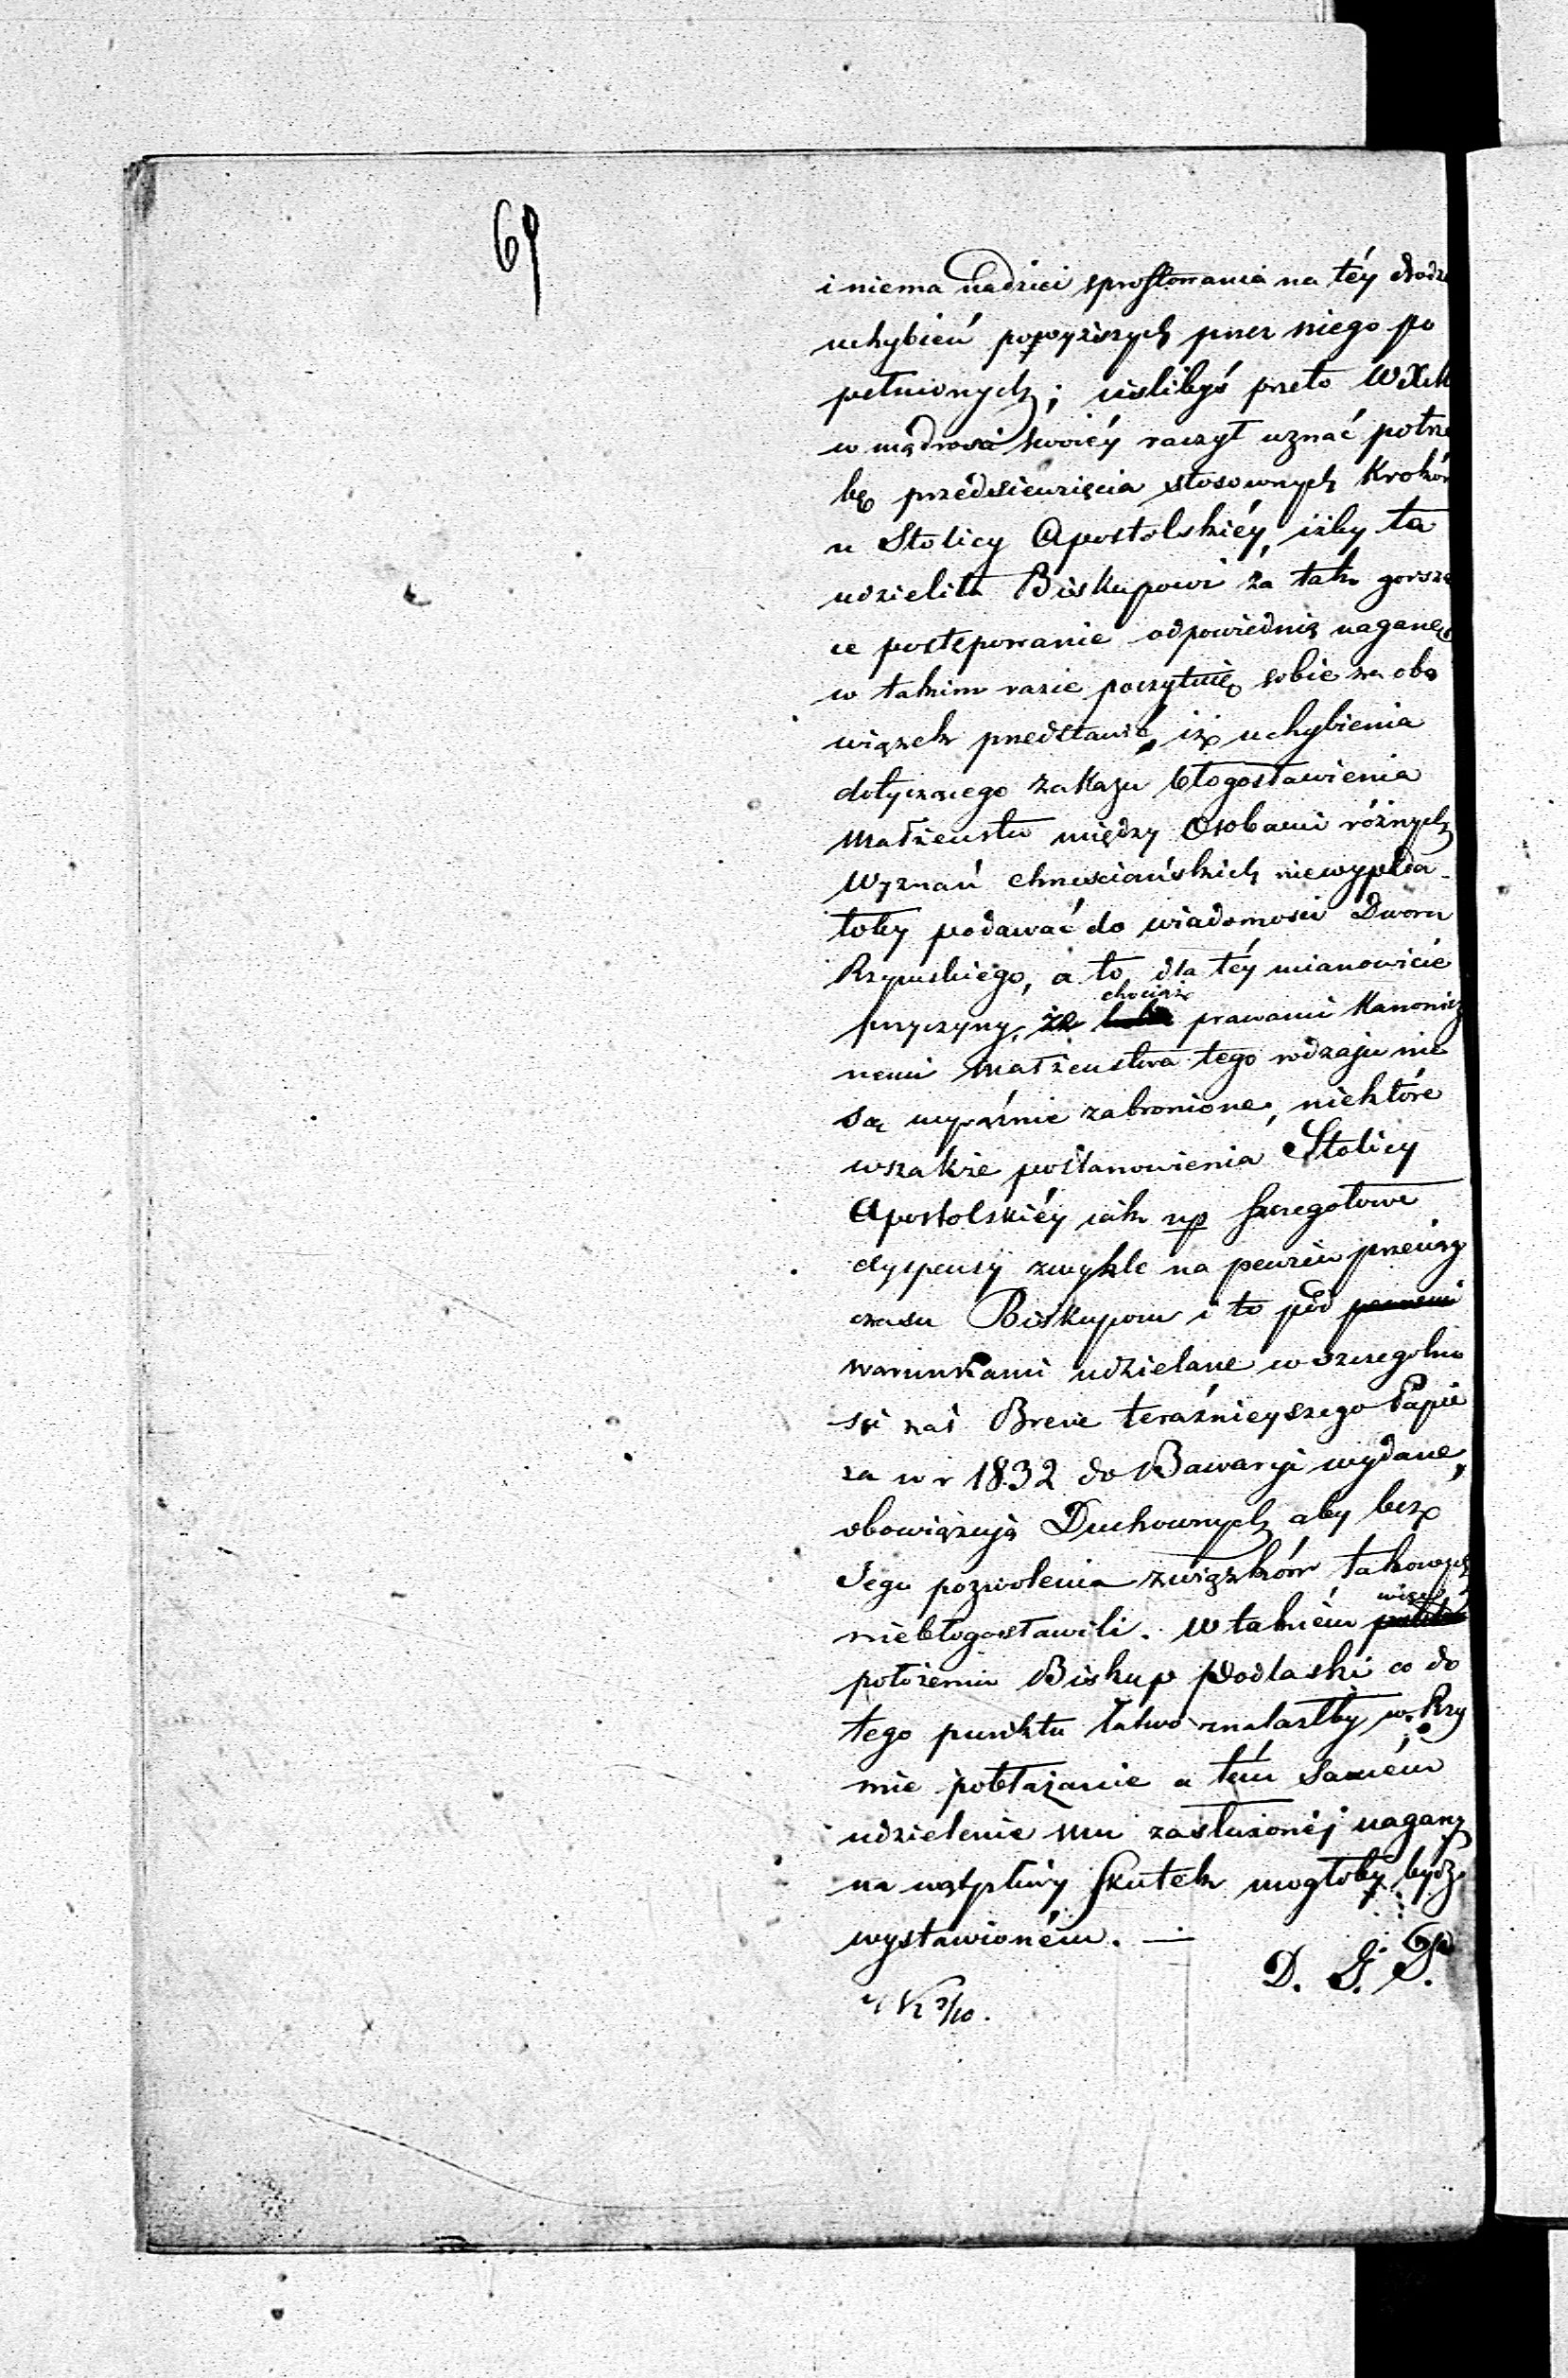 69
i niema nadziei sprostowania na téy drodze
uchybień powyższych przez niego po
pełnionych; jeślibyś przeto WXM
w mądrości swoiéy raczył uznać potrze
bę przedsiewzięcia stosownych Kroków
u Stolicy Apostolskiéy, iżby ta
udzieliła Biskupowi za tak gorszą
ce postępowanie odpowiednią naganę,
w takim razie poczytuię sobie za obo
wiązek przedstawić, iż uchybienia
dotyczącego zakazu błogosławienia
Małżeństw między Osobami różnych
Wyznań chrześciańskich niewypada-
łoby podawać do wiadomości Dworu
Rzymskiego, a to dla téy mianowicie
przyczyny, że chociaż prawami Kanonicz
nemi Małżeństwa tego rodzaju nie
są wyraźnie zabronione, niektóre
wszakże postanowienia Stolicy
Apostolskiéy iak np szczegółowe
dyspensy zwykle na pewien przeciąg
czasu Biskupom i to pod pewnemi
warunkami udzielane w szczególno
ści zaś Breve teraźnieyszego Papie
ża w r 1832 do Bawaryi wydane,
obowiązują Duchownych aby bez
Jego pozwolenia związków takowych
niebłogosławili. W takiém więc
położeniu Biskup Podlaski co do
tego punktu łatwo znalazłby w Rzy
mie pobłażanie a tém samém
udzielenie mu zasłużonéj nagany
na wątpliwy skutek mogłoby bydź
wystawioném. —
D. G. P.